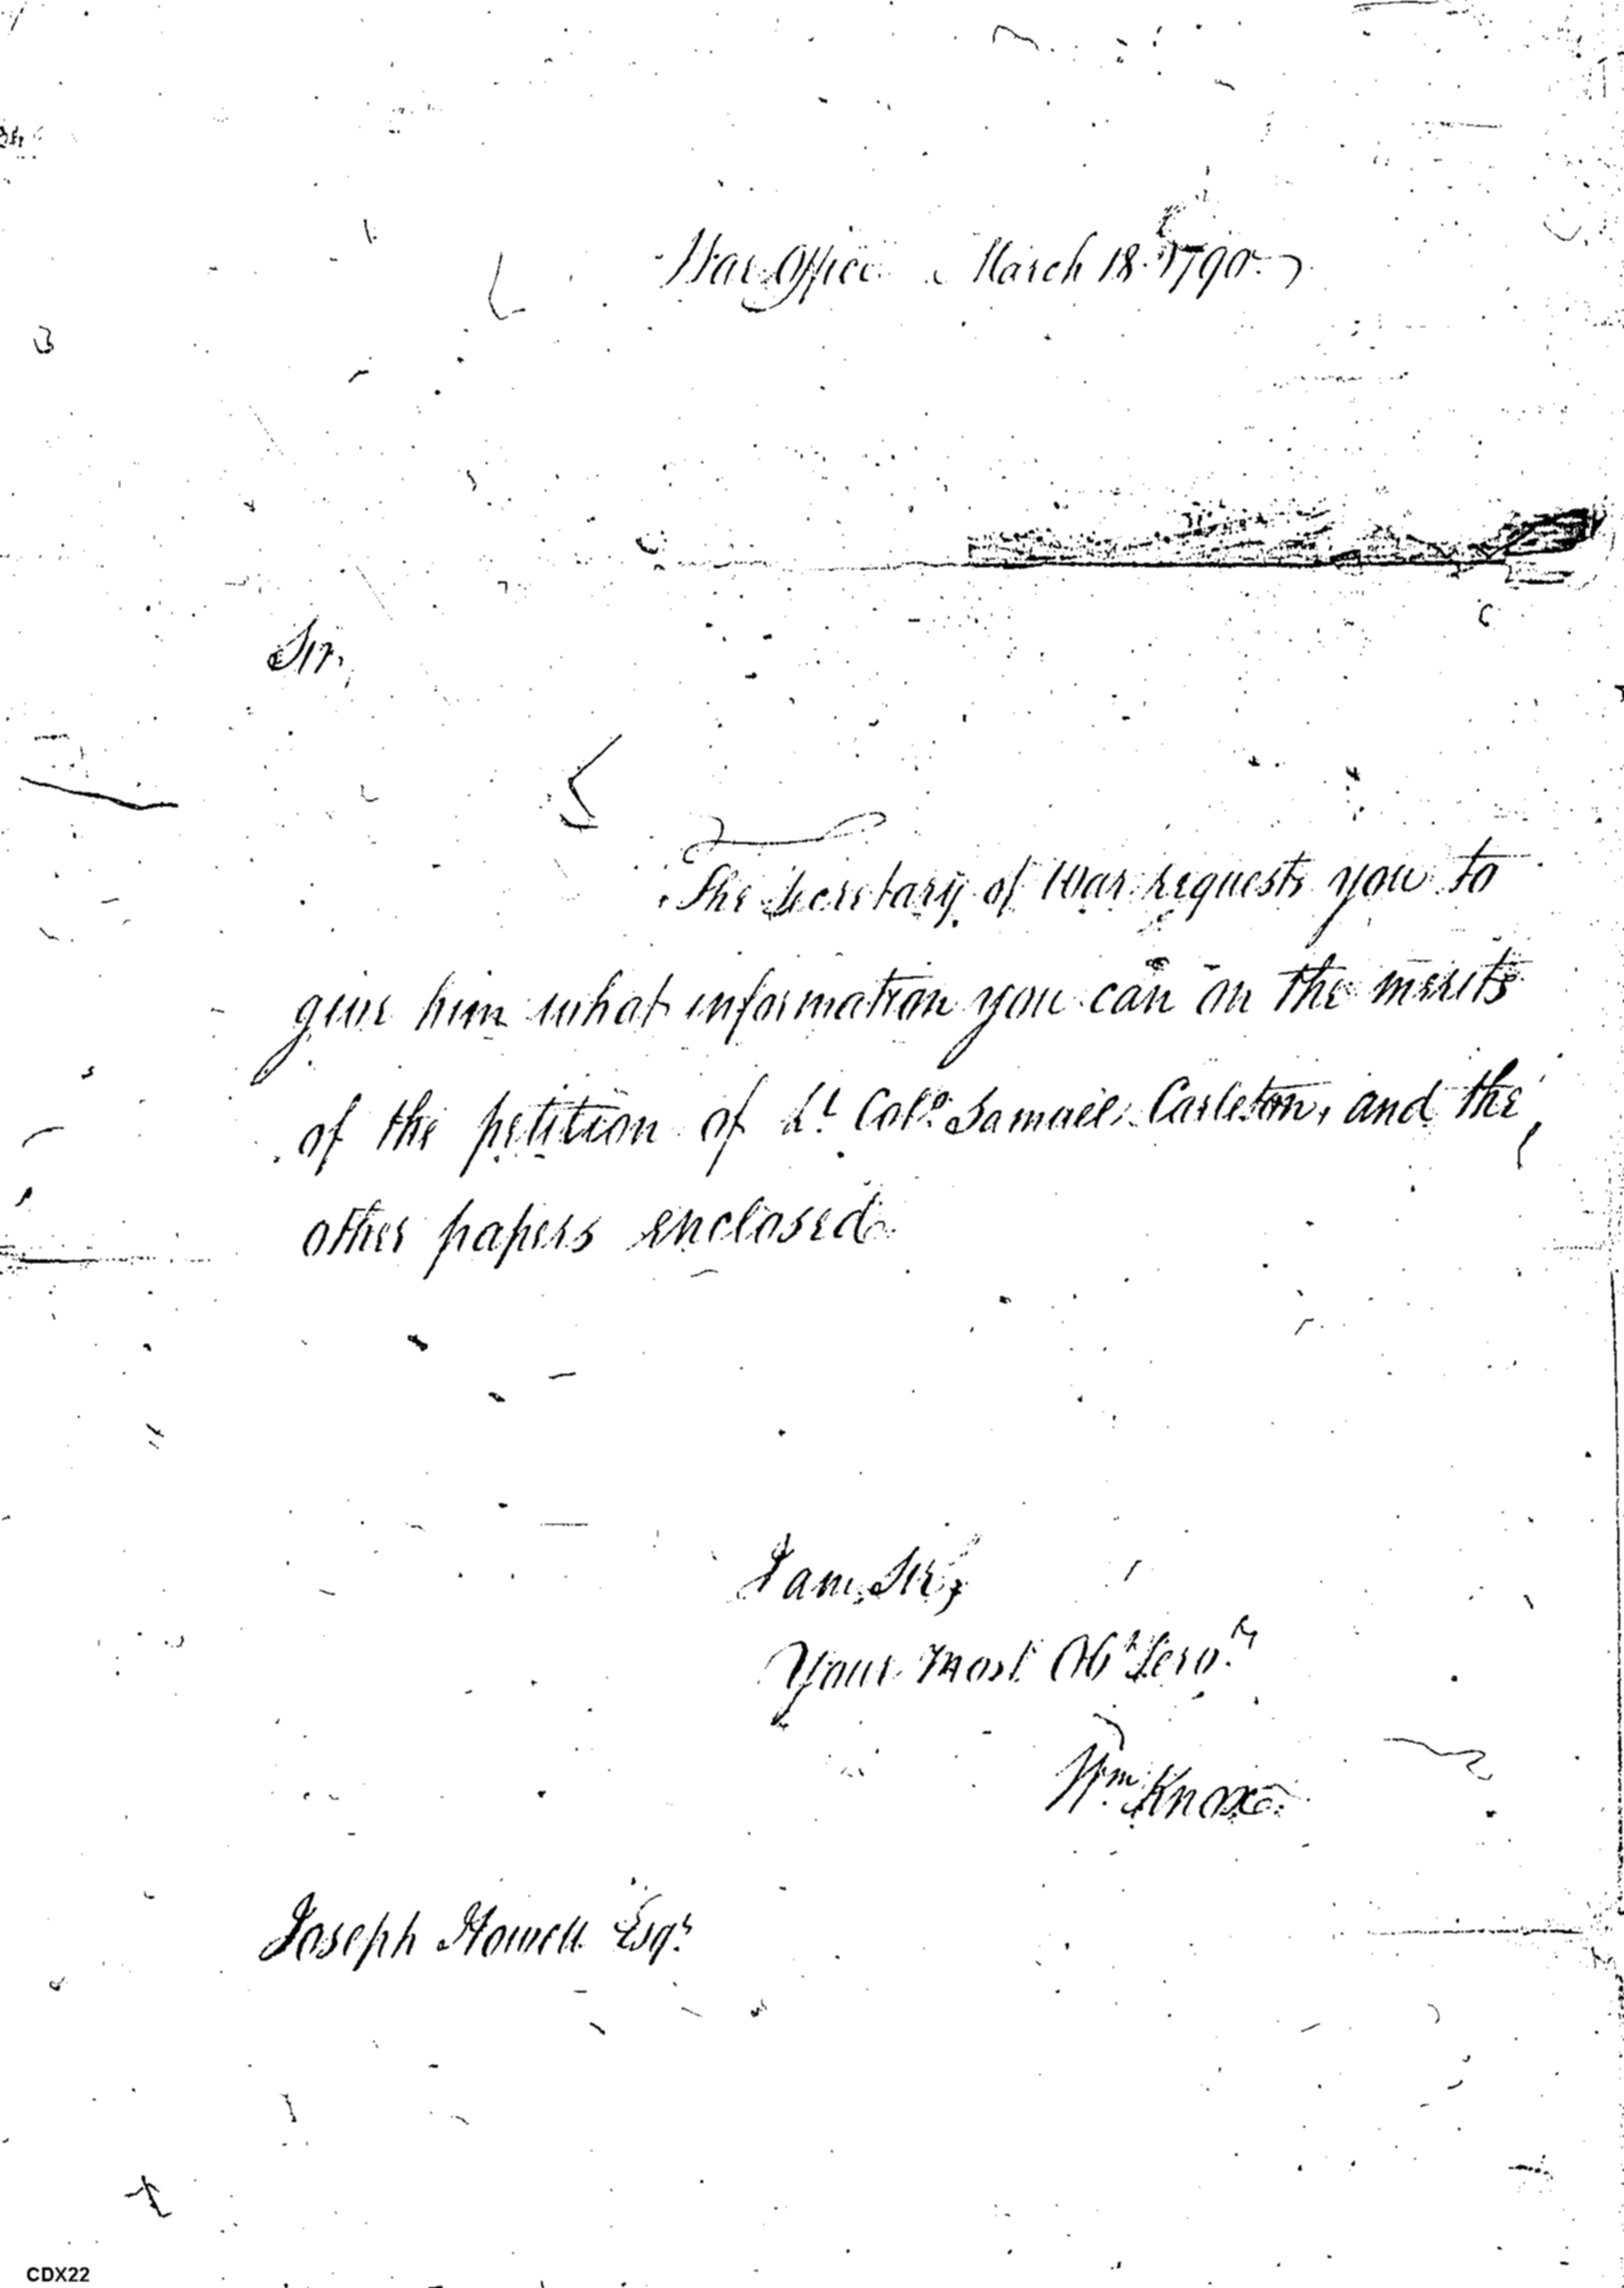 War Office March 18. 1790.
Sir,
The Secretary of War requests you to
give him what information you can on the merits
of the petition of Lt. Colo. Samuel Carleton, and the
other papers enclosed.
I am, Sir,
Your most Obt Servt.
Wm. Knox
Joseph Howell Esqr.
CDX22